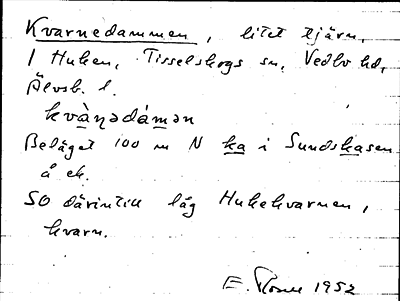 Kvarnedammen, litet tjärn,
1 Huken, Tisselskogs sn, Vedbo hd,
Älvsb. l.
kvàṇədámən
Beläget 100 m N ka i Sundskasen
å ek.
SO därintill låg Hukekvarnen,
kvarn.
E. 1952